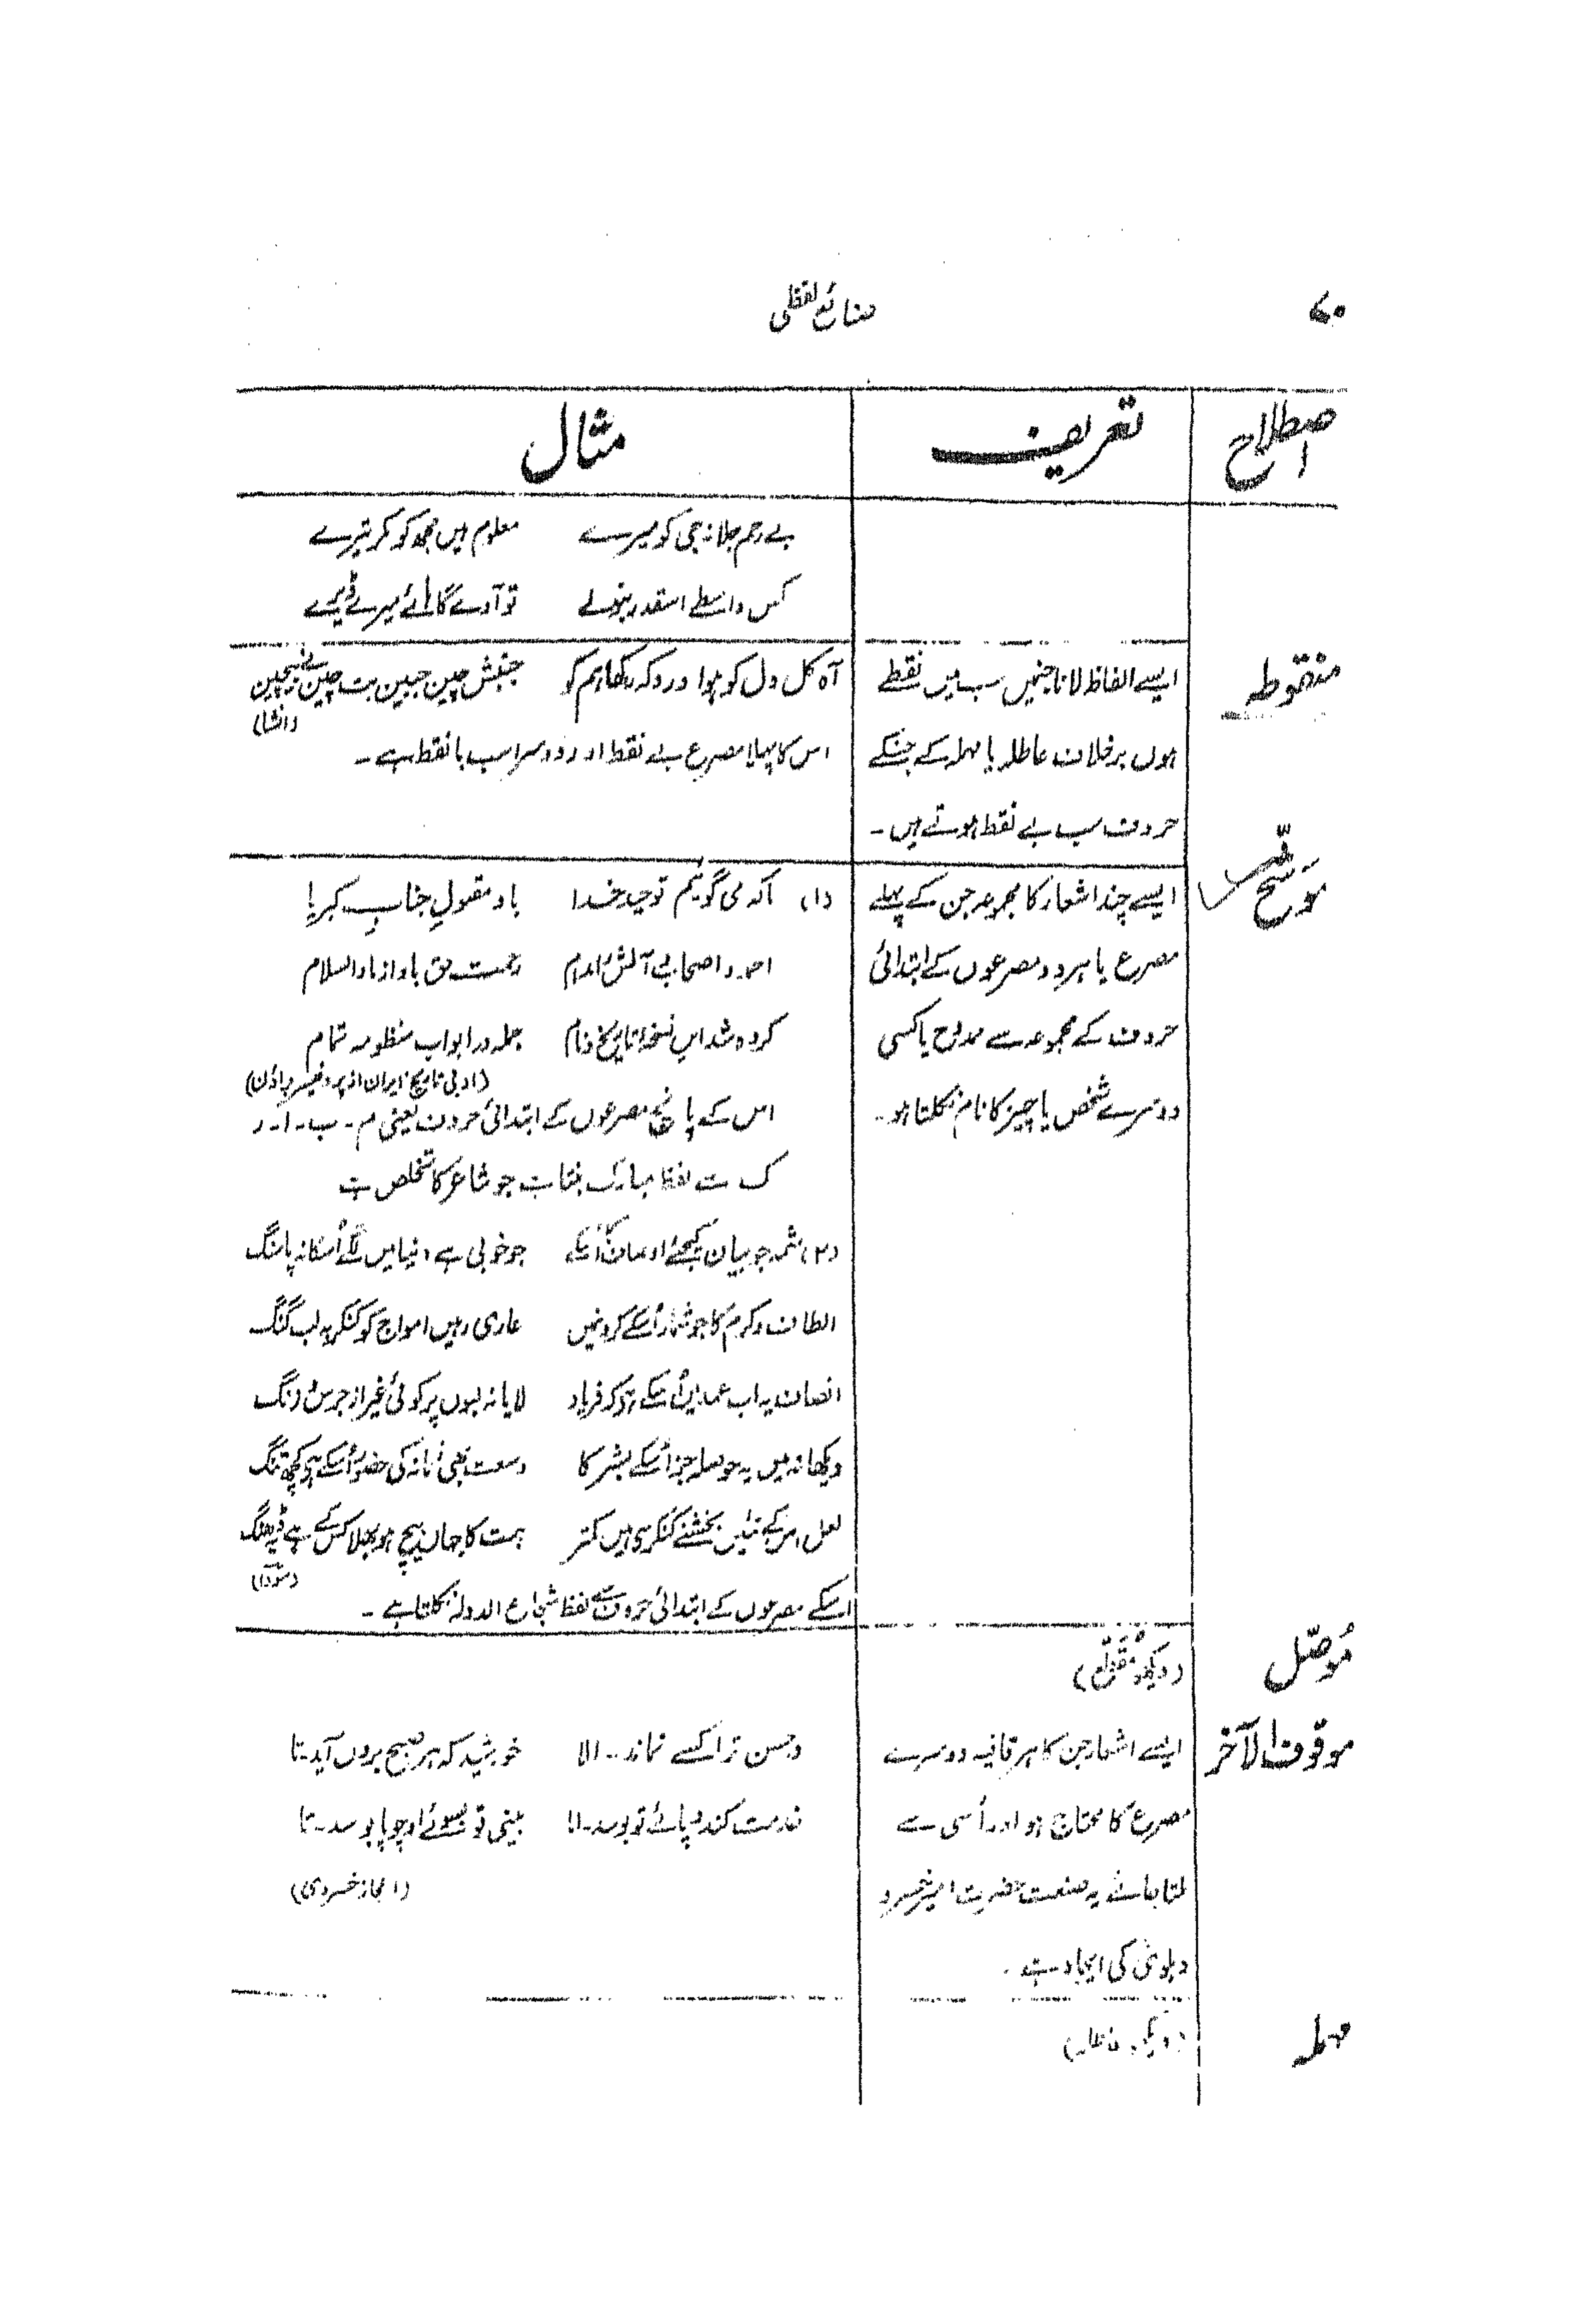 ۷۰
صنائع لفظی
اصطلاح تعریف مثال
بے رحم جلا نہ جی کو میرے معلوم ہیں مجھکو مکر تیرے
کس واسطے اسقدر تو آوے گا ہائے میرے ڈیرے
منقوطہ
ایسے الفاظ لانا جنمیں سب میں نقطے
ہوں برخلاف عاطلہ یا مہملہ کے جنکے
حروف سب بے نقط ہوتے ہیں ۔
آہ کل دل کو ہوا درد کہ رکھا ہم کو جنبش چین جبین بت چین نے بیچین
(انشا)
اس کا پہلا مصرع بے نقط اور دوسرا سب با نقط ہے ۔
موشّح
ایسے چند اشعار کا مجموعہ جن کے پہلے
مصرع یا ہر دو مصرعوں کے ابتدائی
حروف کے مجموعہ سے ممدوح یا کسی
دوسرے شخص یا چیز کا نام نکلتا ہو ۔
(۱) آنکہ می گویم توحید خدا باد مقبولِ جنابِ کبریا
احمد و اصحاب و آلش را مدام رحمت حق باد از ما والسلام
کردہ شد این نسخہ تا تاریخ و نام جملہ در ابواب منظومہ تمام
(ادبی تاریخ ایران از پروفیسر براؤن)
اس کے پانچ مصرعوں کے ابتدائی حروف یعنی م ۔ ب ۔ ا ۔ ر
ک سے لفظ مبارک بنتا ہے جو شاعر کا تخلص ہے
(۲) شمہ جو بیان کیجئے اوصاف کا اُسکے جو خوبی ہے دنیا میں لگے اُسکا نہ پاسنگ
الطاف و کرم کا جو شمار اُسکے کروں میں عاری رہیں امواج کو گنکر بہ لب گنگ
انصاف یہ اب عہد میں اُسکے ہے کہ فریاد لایا نہ لبوں پر کوئی غیر از جرس و زنگ
دیکھا نہ میں یہ حوصلہ جز اُسکے بشر کا وسعت بھی زمانہ کی حضور اُسکے ہے کچھ تنگ
لعل اسکے تئیں بخشنے کنکر سے ہیں کمتر ہمت کا جہاں بیچ ہو بھلا کس کے یہ ڈھنگ
(سودا)
اسکے مصرعوں کے ابتدائی حروف سے لفظ شجاع الدولہ نکلتا ہے ۔
مُوصّل
(دیکھو مُقطّع)
موقوف الآخر
ایسے اشعار جن کا ہر قافیہ دوسرے
مصرع کا محتاج ہو اور اُسی سے
ملتا جائے یہ صنعت حضرت امیر خسرو
دہلوی کی ایجاد ہے ۔
در حسن ترا کسے نماند ۔ الا خورشید کہ ہر صبح بروں آید ۔ تا
خدمت کند و پائے تو بوسد ۔ اما بینی تو بسوئے او چو پا بوسد ۔ تا
(اعجاز خسروی)
مہملہ
(دیکھو عاطلہ)